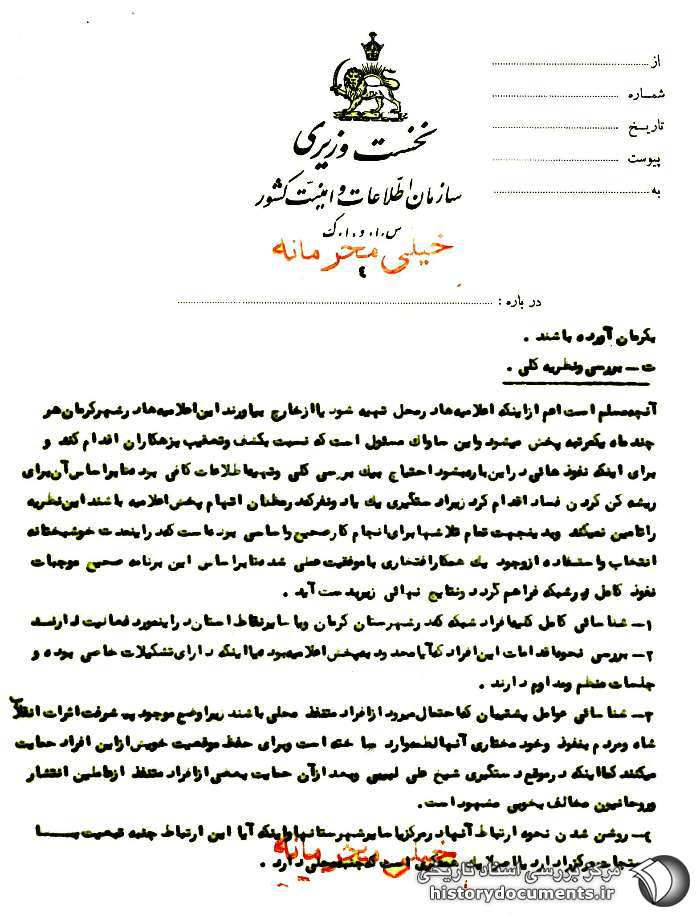 از
شماره
تاریخ
پیوست
به
نخست وزیری
سازمان اطلاعات و امنیت کشور
س.ا.و.ا.ک
خیلی محرمانه
٤
در باره :
بکرمان آورده باشند .
ت - بررسی و نظریه کلی .
آنچه مسلم است اعم از اینکه اعلامیه ها در محل تهیه شود یا از خارج بیاورند این اعلامیه ها در شهر کرمان هر
چند ماه یکمرتبه پخش میشود و این ساواک مسئول است که نسبت بکشف و تعقیب بزهکاران اقدام کند و
برای اینکه نفوذ هائی در این باره بشود احتیاج به یک بررسی کلی و تهیه اطلاعات کافی بود بنابراساس آن برای
ریشه کن کردن فساد اقدام کرد زیرا دستگیری یک یا دو نفر که در مظنان اتهام پخش اعلامیه باشند این نظریه
را تامین نمیکند و بدینجهت تمام تلاشها برای انجام کار صحیح و اساسی بوده است که در اینمدت خوشبختانه
انتخاب و استفاده از وجود یک همکار افتخاری با موفقیت عملی شد بنابراساس این برنامه صحیح موجبات
نفوذ کامل در شبکه فراهم گردد و نتایج نهائی زیر بدست آید .
۱- شناسائی کامل کلیه افراد شبکه که در شهرستان کرمان و یا سایر نقاط استان در اینمورد فعالیت دارند
۲- بررسی نحوه اقدامات این افراد که آیا محدود به پخش اعلامیه بوده یا اینکه دارای تشکیلات خاصی بوده و
جلسات منظم و مداوم دارند .
۳- شناسائی عوامل پشتیبان که احتمال میرود از افراد متنفذ محلی باشند زیرا وضع موجود پیشرفت اثرات انقلاب
شاه و مردم بنفوذ و خود مختاری آنها لطمه وارد ساخته است و برای حفظ موقعیت خویش از این افراد حمایت
میکنند کما اینکه در موقع دستگیری شیخ علی لبیبی و بعد از آن حمایت بعضی از افراد متنفذ از عاملین انتشار
و روحانیون مخالف بخوبی مشهود است .
۴- روشن شدن نحوه ارتباط آنها در مرکز یا سایر شهرستانها و اینکه آیا این ارتباط جنبه تبعیت بـــا
دستجات مرکز دارد یا است که جنبه محلی دارد .
خیلی محرمانه
مرکز بررسی اسناد تاریخی
historydocuments.ir